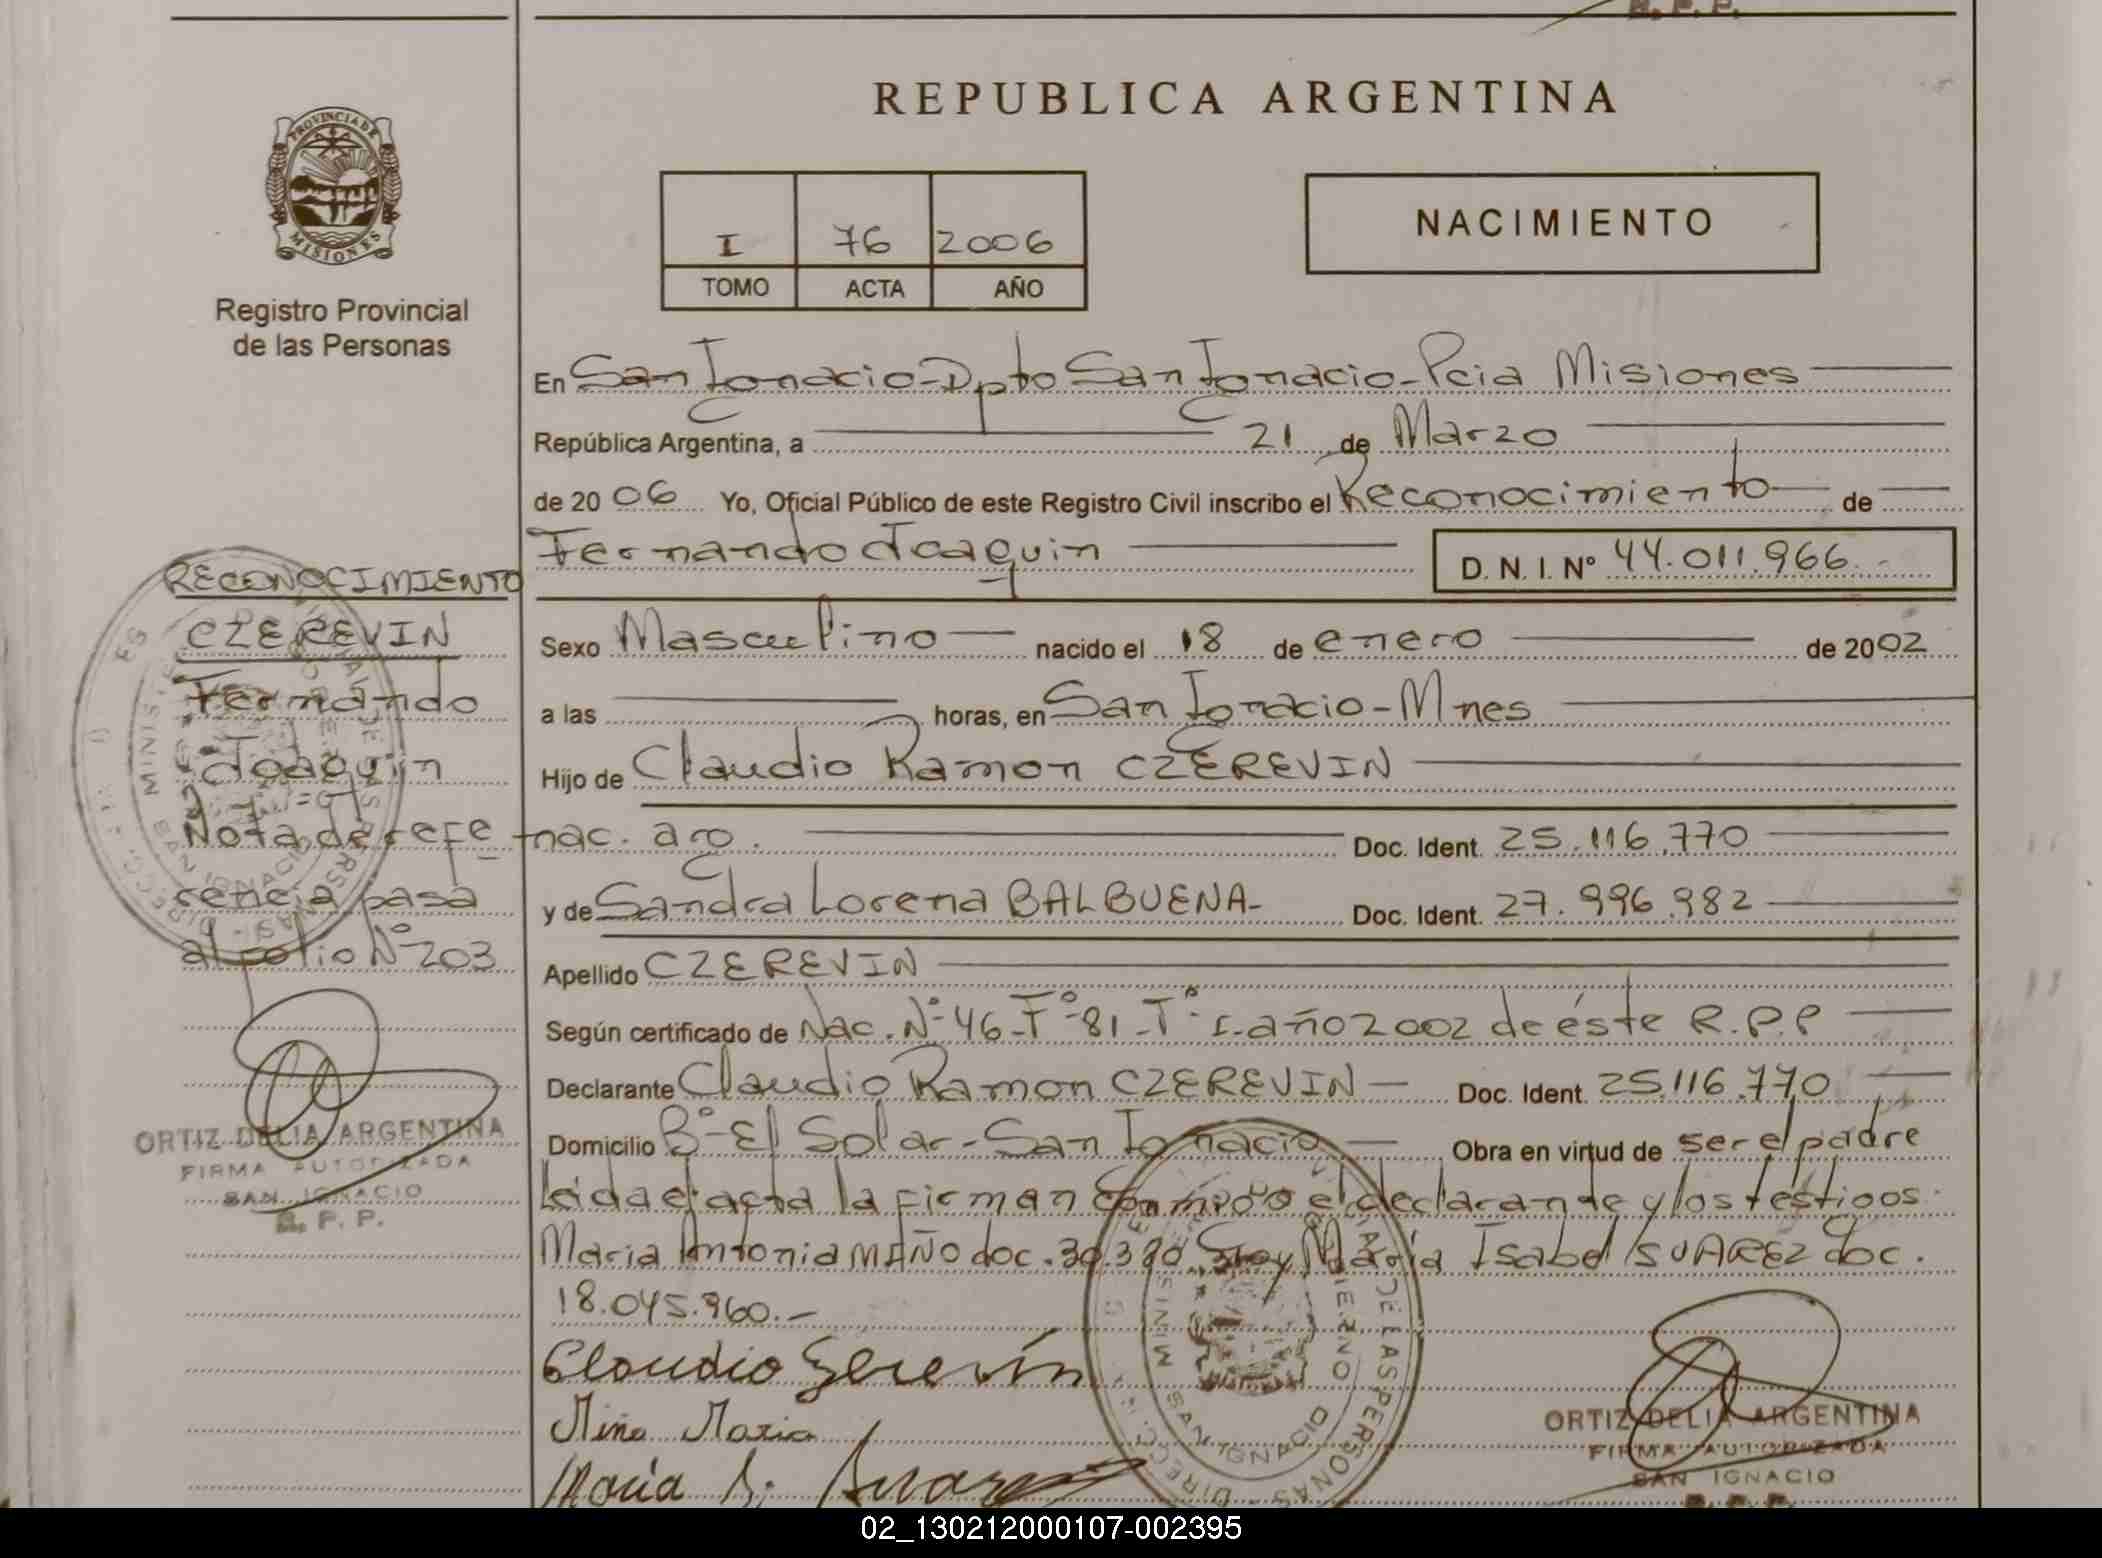 R. P. P.
PROVINCIA DE
MISIONES
Registro Provincial
de las Personas
REPUBLICA ARGENTINA
I 76 2006
TOMO ACTA AÑO
NACIMIENTO
En San Ignacio-Dpto San Ignacio-Pcia Misiones
República Argentina, a 21 de Marzo
de 2006 Yo, Oficial Público de este Registro Civil inscribo el Reconocimiento de
Fernando Joaquin D. N. I. Nº 44.011.966.-
Sexo Masculino nacido el 18 de enero de 2002
a las horas, en San Ignacio-Mnes
Hijo de Claudio Ramon CZEREVIN
nac. arg. Doc. Ident. 25.116.770
y de Sandra Lorena BALBUENA- Doc. Ident. 27.996.982
Apellido CZEREVIN
Según certificado de Nac. Nº 46-Fº 81-Tº I-año 2002 de éste R.P.P
Declarante Claudio Ramon CZEREVIN Doc. Ident. 25.116.770
Domicilio Bº El Solar-San Ignacio Obra en virtud de ser el padre
Leida el acta la firman conmigo el declarante y los testigos
Maria Antonia doc. 30.390. y María Isabel SUAREZ doc.
18.045.960.-
RECONOCIMIENTO
CZEREVIN
Fernando
Joaquin
Nota de refe
rencia pasa
al folio Nº 203
ORTIZ DELIA ARGENTINA
FIRMA AUTORIZADA
SAN IGNACIO
R. P. P.
Claudio
Maria
María
SAN IGNACIO
DE LAS PERSONAS
ORTIZ DELIA ARGENTINA
FIRMA AUTORIZADA
SAN IGNACIO
02_130212000107-002395